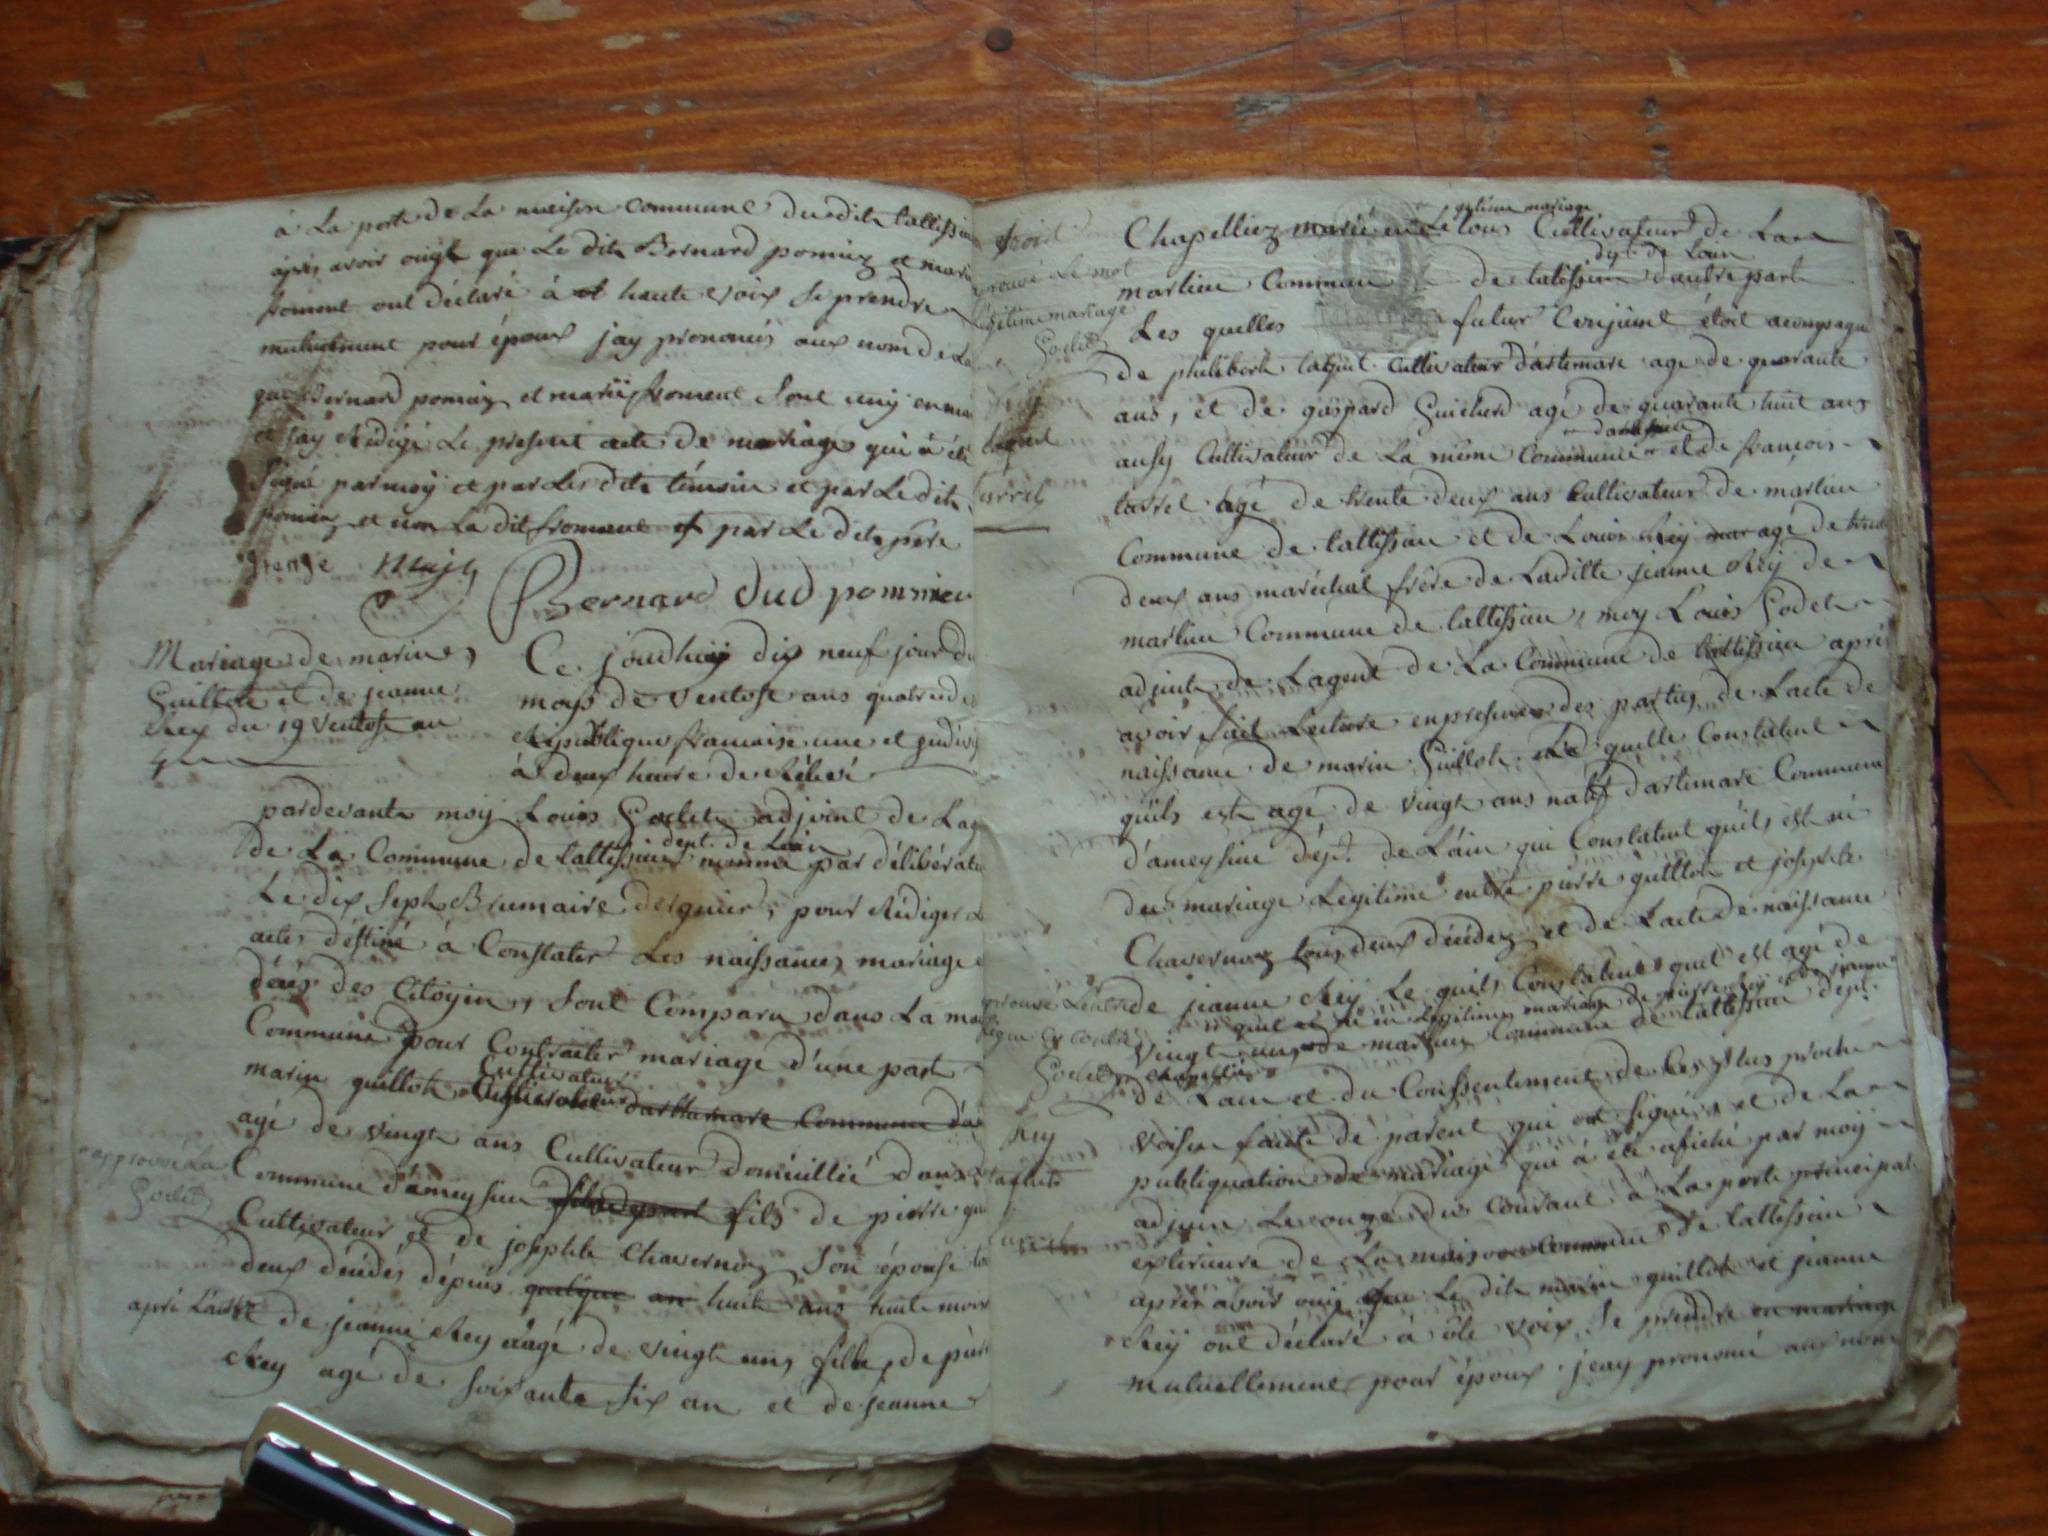 à La porte de La maison commune du dit tallissieu
après avoir ouigt que Le dit Bernard pomiez et marie
froment ont déclaré à haute voix se prendre
mutuelment pour époux jay prononcés aux nom de La
que Bernard pomiez et marie froment sont uniy en
et jay Rédigé Le present acte de mariage qui à été
signé par moy et par Les dits témoin et par Le dit
pomiez et non La dit froment et par Le dit père
Bernard dud pommier
Mariage de marin
Guillot et de jeanne
Rey du 19 ventose an
4
Ce joudhuiy dix neuf jour du
moys de ventose ans quatre de
République francaise une et indivis
à deux heure de Rélevé
pardevant moy Louis Godet adjoint de Lag
dept. de Lain
de La Commune de tallissieu nommé par délibérati
Le dix sept Brumaire dergnier, pour Rédiger
actes déstiné à Constater Les naissances mariage
décès des Citoyin, sont Comparu dans La mai
Commune pour Contracter mariage d'une part
Cultivateur
marin guillot Cultivateur dartemare Commune da
agé de vingt ans Cultivateur Domicillié dans
approuvé La
Godet
Commune d'ameysieu fils de pierre gui
Cultivateur et de josephte Chavernoz son épouse
deux décédés dépuis quelque an huit ans huit mois
après Lautre
de jeanne Rey agé de vingt un, fille de pierre
Rey agé de soixante six an et de jeanne
gitime mariage
Chapelliez marié Cultivateur de La
dpt. de Lain
marlieu Commune de talissieu dautre part
prouvé Le mot
légitime mariage
Godet
Les quelles futur Conjoint étoit acompagné
de philibert taput Cultivateur d'artemare agé de quarante
ans, et de gaspard Guicherd agé de quarante huit ans
ausy Cultivateur de La même Commune et de francois
tarrel agé de trente deux ans Cultivateur de marlieu
Commune de tallissieu et de Louis Rey agé de trente
deux ans maréchal frère de Laditte jeanne Rey de
marlieu Commune de tallissieu, moy Louis Godet
adjoint de Lagent de La Commune de tallissieu après
avoir fait Lecture en presence des parties de Lacte de
naissance de marin Guillot Le quelle Constatent
quils est agé de vingt ans natif dartemare Commune
d'ameysieu dépt. de Lain qui Constatent quils est né
du mariage Légitime entre pierre guillot et josephte
Chavernoz tous deux décédez et de Lacte de naissance
prouvé Lentre
ligne
Godet
de jeanne Rey Le quils Constatent quel est agé de
quel et né en légitime mariage de pierre Rey et de jeanne
chapellier
vingt un, de marlieu Commune de tallissieu dépt.
de Lain et du Conssentement de Les plus proche
Rey
voisin faute de parent qui ont signés et de La
publiquation de mariage qui à été afiché par moy
adjoin Le onze du Courant à La porte principale
exterieure de La maison Commune de tallissieu
après avoir ouiy que Le dit marin guillot et jeanne
Rey ont déclaré à ôte voix se prendre en mariage
mutuellement pour époux jeay prononcé aux nom